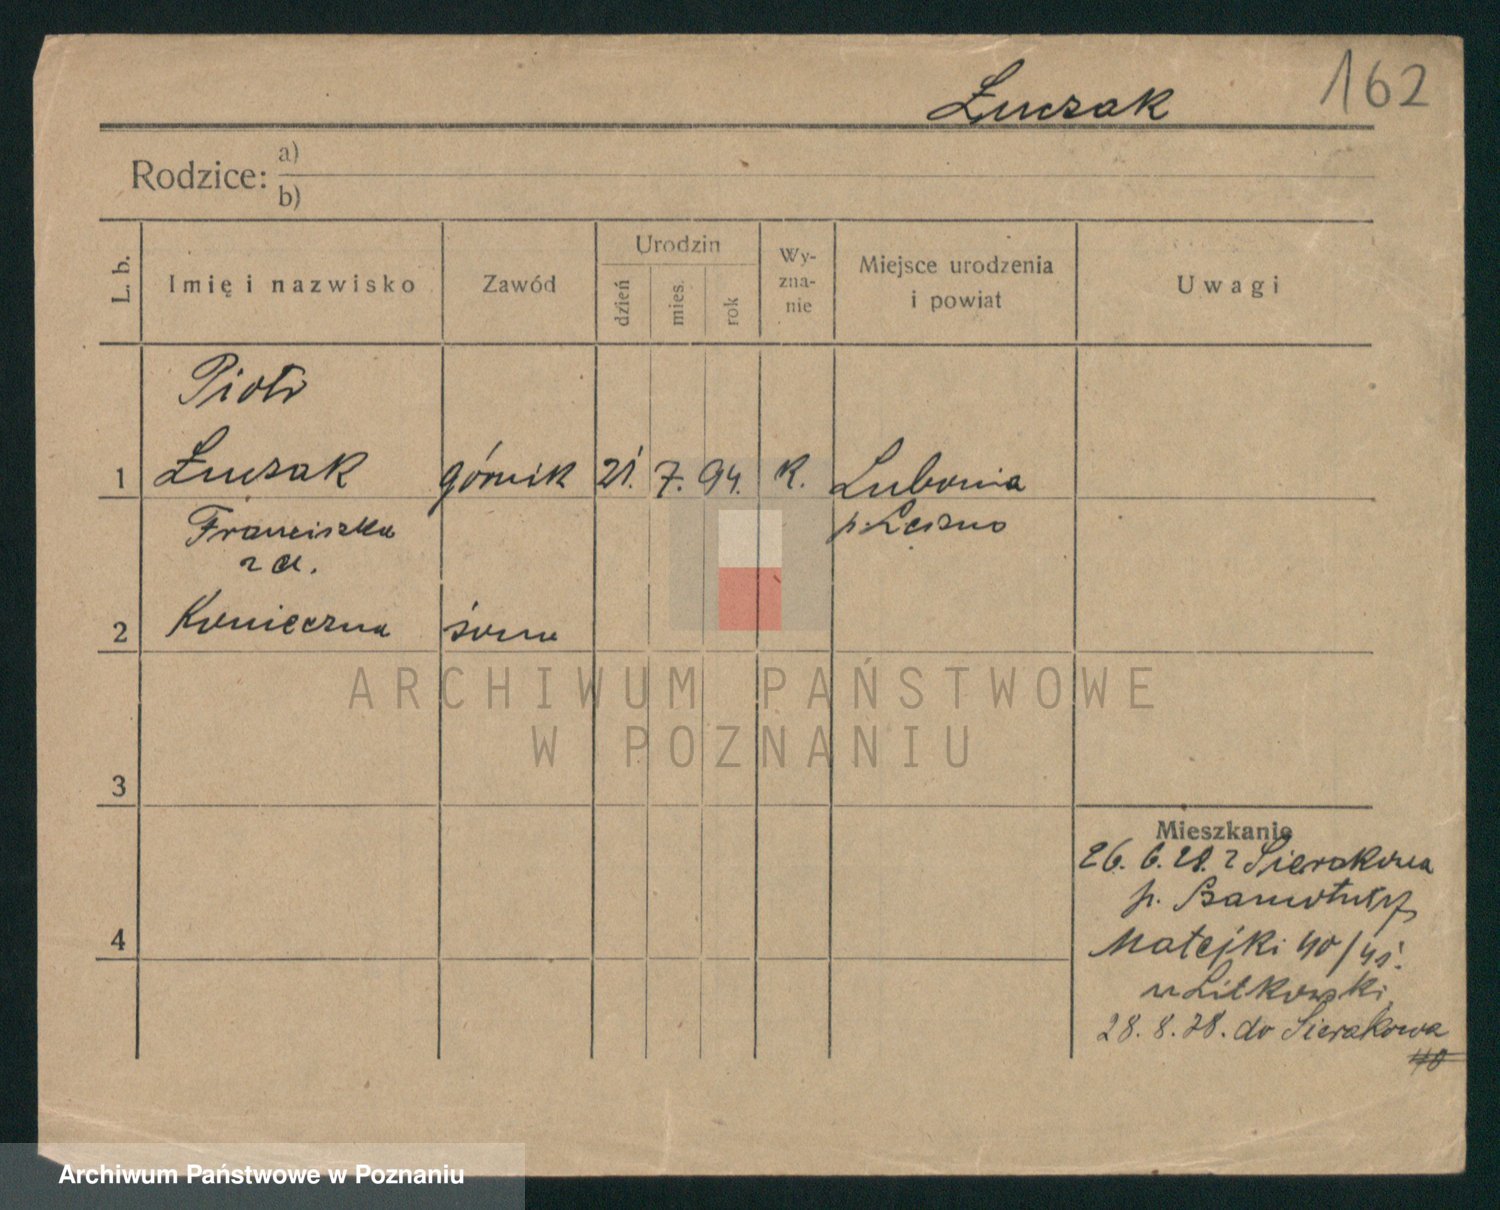 Łuczak 162
Rodzice: a)
b)
L. b. Imię i nazwisko Zawód Urodzin dzień mies. rok Wy-zna-nie Miejsce urodzenia i powiat Uwagi
Piotr
1 Łuczak górnik 21. 7. 94. K. Lubonia
Franciszka p. Leszno
z d.
2 Konieczna żona
ARCHIWUM PAŃSTWOWE
W POZNANIU
3
Mieszkanie
26. 6. 28. z Sierakowa
p. Szamotuły
4 Matejki 40/41.
28. 8. 28. do Sierakowa
Archiwum Państwowe w Poznaniu